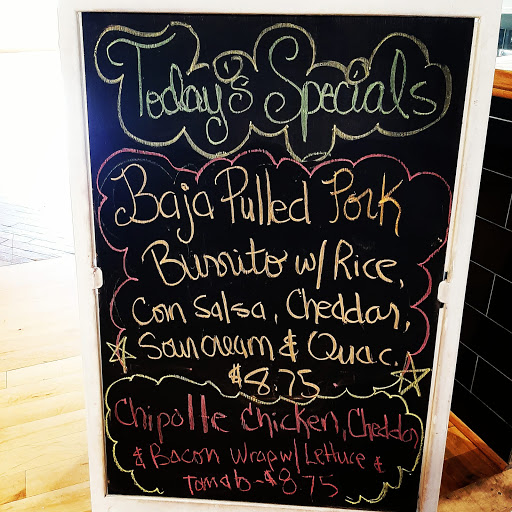 Today's Specials
Baja Pulled Pork
Burrito w/ Rice,
Corn Salsa, Cheddar,
Sour cream & Guac.
$8.75
Chipotle Chicken, Cheddar
& Bacon Wrap w/ Lettuce &
Tomato - $8.75